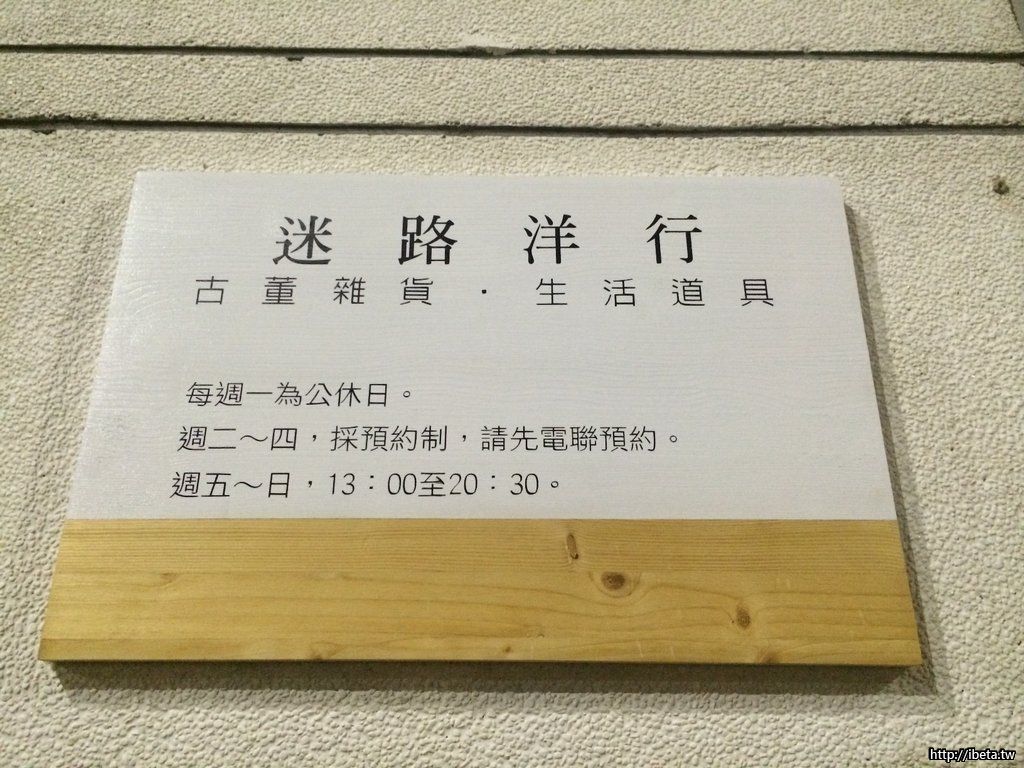 迷路洋行
古董雜貨・生活道具
每週一為公休日。
週二～四，採預約制，請先電聯預約。
週五～日，13：00至20：30。
http://ibeta.tw